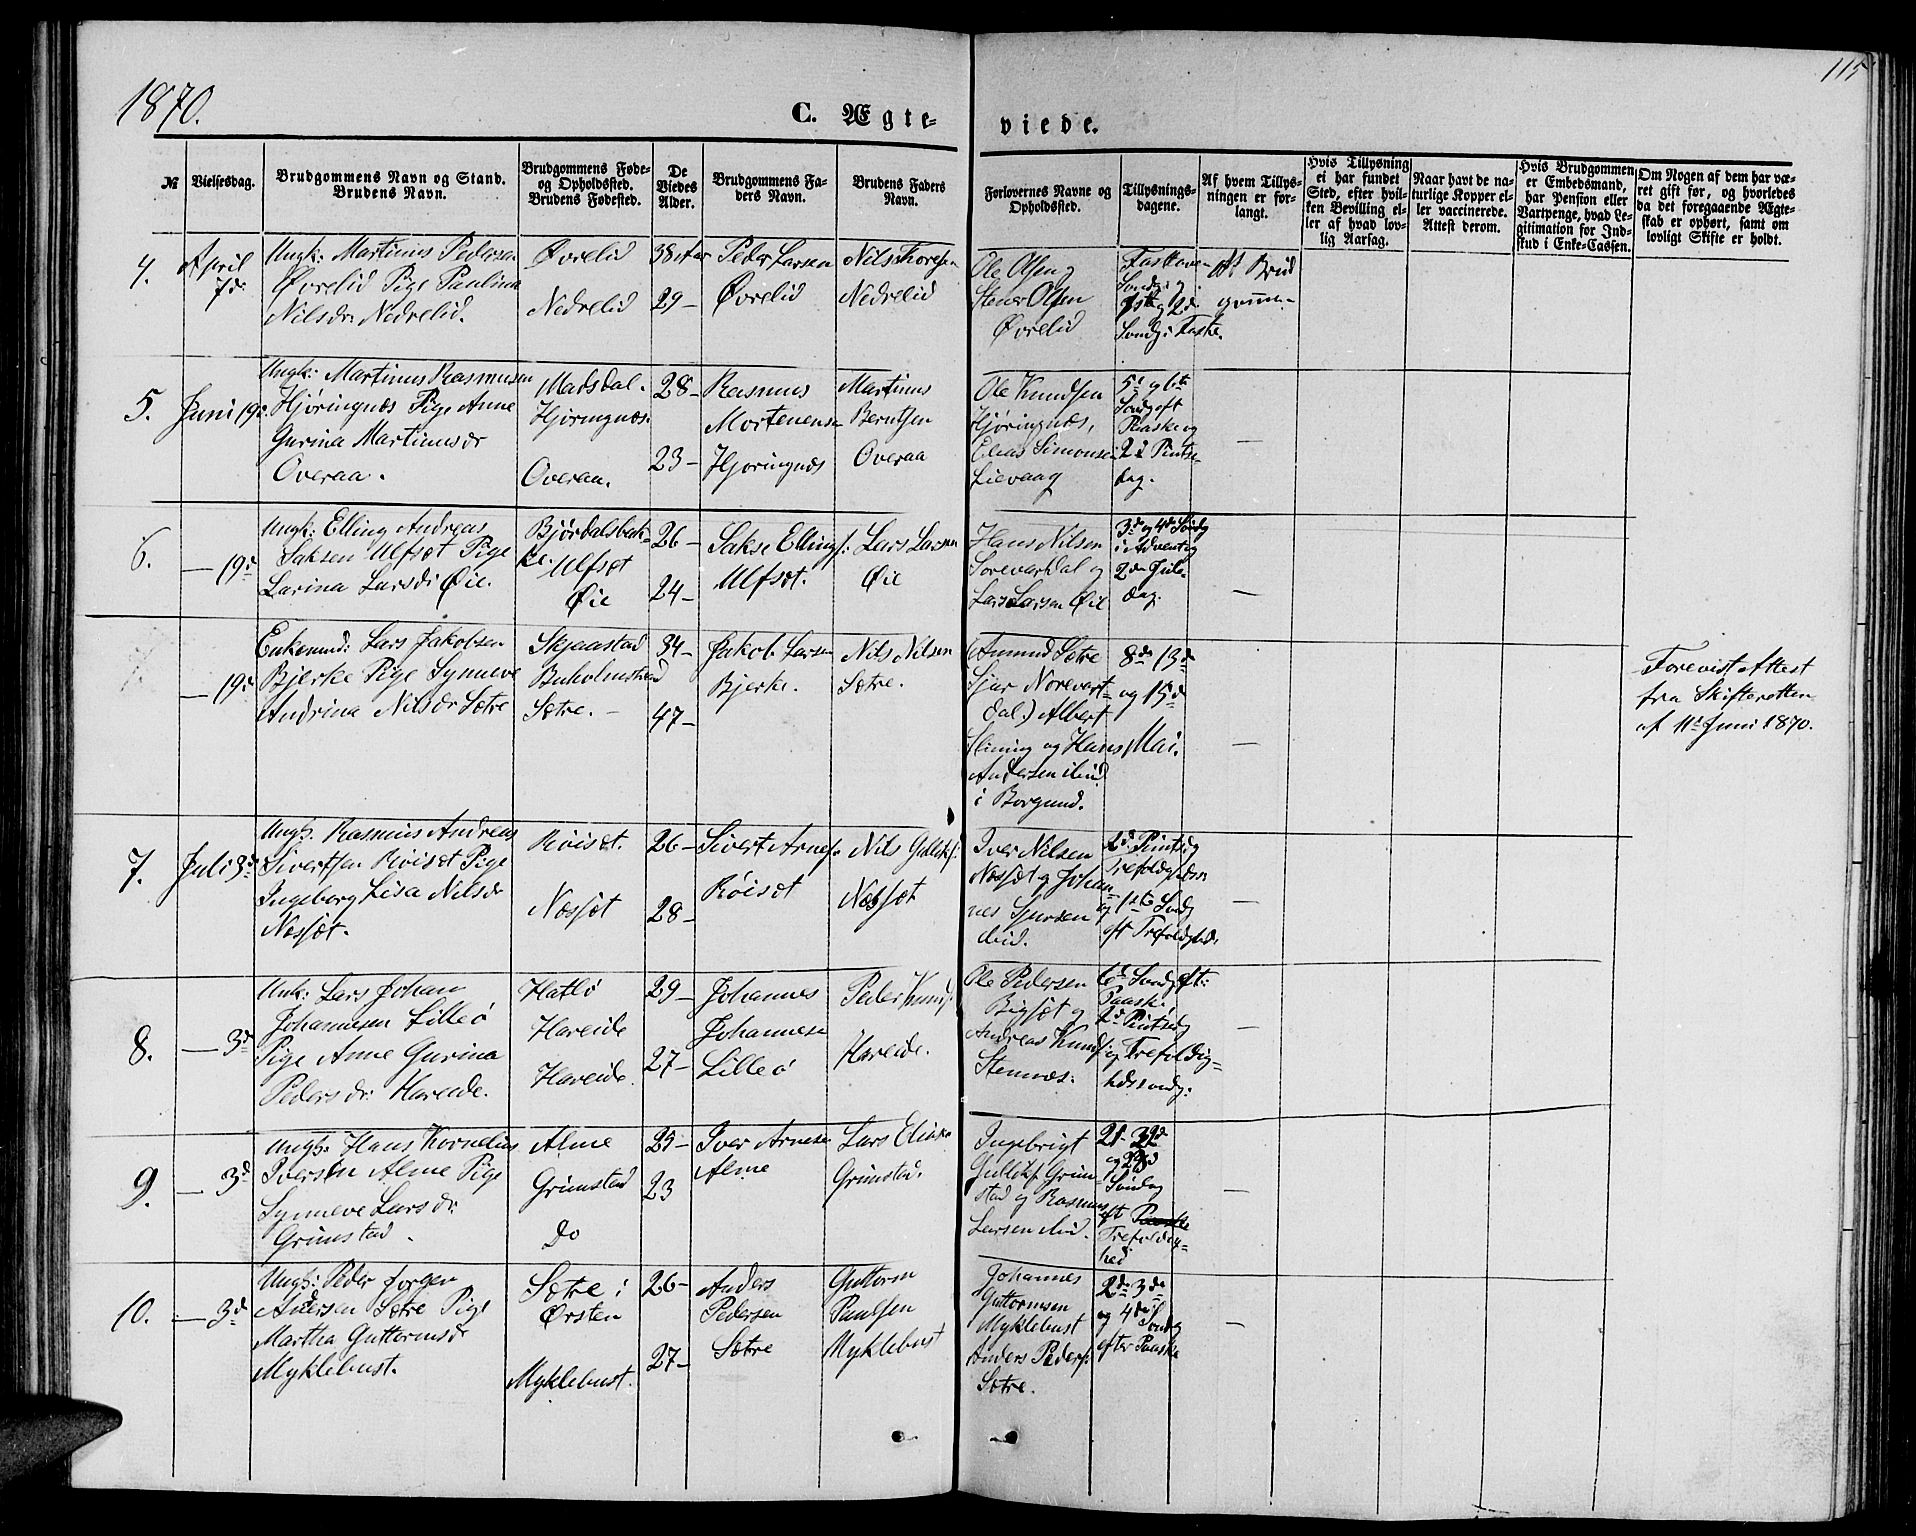 1870.
115
C. Ægte-
viede.
№
Vielsesdag.
Brudgommens Navn og Stand.
Brudens Navn.
Brudgommens Føde-
og Opholdssted.
Brudens Fødested.
De
Viedes
Alder.
Brudgommens Fa-
ders Navn.
Brudens Faders
Navn.
Forlovernes Navne og
Opholdssted.
Tillysnings-
dagene.
Af hvem Tillys-
ningen er for-
langt.
Hvis Tillysning
ei har fundet
Sted, efter hvil-
ken Bevilling el-
ler af hvad lov-
lig Aarsag.
Naar havt de na-
turlige Kopper el-
ler vaccinerede.
Attest derom.
Hvis Brudgommen
er Embedsmand,
har Pension eller
Vartpenge, hvad Le-
gitimation for Ind-
skud i Enke-Cassen.
Om Nogen af dem har væ-
ret gift før, og hvorledes
da det foregaaende Ægte-
skab er ophørt, samt om
lovligt Skifte er holdt.
4.
April
7de
Ungk: Martinus Pedersen
Øvrelid Pige Paulina
Nilsdr: Nedrelid.
Øvrelid
Nedrelid
38 Aar
29-
Peder Larsen
Øvrelid
Nils
Nedrelid
Ole Olsen og
Stener Olsen
Øvrelid
Fastlavn-
Sondg.
1ste og 2d
Sondg i Faste.
Af Brud
gomm-
5.
Juni 19d
Ungk: Martinus Rasmusen
Hjøringnæs Pige Anne
Gurina Martinusdr
Overaa.
Madsdal.
Hjøringnæs.
Overaa.
28-
23-
Rasmus
Mortensen
Hjøringnæs
Martinus
Berntsen
Overaa
Ole Knudsen
Hjøringnæs,
Elias Simonsen
Lievaag
5t og 6te
Sondg eft
Paaske og
2d Pintse-
dag.
—
6.
— 19d
Ungk: Elling Andreas
Saksen Ulfsæt Pige
Larina Larsdr Øie.
Bjørdalsbak-
ke. Ulfsæt
Øie
26-
24-
Sakse Ellings:
Ulfsæt.
Lars Larsen
Øie
Hans Nilsen
Lars Larsen Øie
3de og 4de Sondg
i Advent og
2den Jule-
dag.
—
— 19d
Enkemd: Lars Jakobsen
Bjerke Pige Synneve
Andrina Nilsdr Sætre
Skjaastad
Buholmstrand
Sætre. -
34-
47-
Jakob Larsen
Bjerke.
Nils Nilsen
Sætre.
(Amund Sætre
Sjur Norevart-
dal.) Albert
Fliening og Hans
Andersen ibid
i Borgund.
8de 13de
og 15de
Mai.
—
Forevist Attest
fra Skifteretten
af 11te Juni 1870.
7.
Juli 3d
Ungk. Rasmus Andreas
Sivertsen Røiset Pige
Ingeborg Lisa Nilsdr
Næssæt.
Røiset.
Næssæt
26-
28-
Sivert Arnes.
Røiset
Nils Gulleks.
Næssæt
Iver Nilsen
Næssæt og Johan-
nes Sjursen
ibid.
2d Pintsdg
Trefoldigheds
og 1ste Sondg
eft Trefoldghd.
—
8.
— 3d
Unk: Lars Johan
Johannesen Lilleø
Pige Anne Gurina
Pedersdr: Hareide.
Hatlø
Hareide
Hareide.
29-
27-
Johannes
Johannesen
Lilleø
Peder Knuds.
Hareide.
Ole Pedersen
Bigsæt og
Andreas Knuds.
Stennæs.
6d Sondg eft:
Paaske
2d Pintsedg
og Trefoldig-
hedssondg:
—
9.
— 3d
Ungk: Hans Kornelius
Iversen Alme Pige
Synneve Larsdr:
Grimstad.
Alme
Grimstad
Do
25-
23
Iver Arnesen
Alme
Lars
Grimstad.
Ingebrigt
Gulleks. Grim-
stad og Rasmus
Larsen ibid.
Søndag
eft Paaske
Trefoldig-
hed
—
10.
— 3d
Ungk: Peder Jørgen
Andersen Sætre Pige
Martha Guttormsdr
Myklebust.
Sætre i
Ørsten
Myklebust.
26-
27-
Anders
Pedersen
Sætre
Guttorm
Paulsen
Myklebust
Johannes
Guttormsen
Myklebust
Anders Peders.
Sætre.
2de 3de
og 4de Sondg
efter Paaske
—